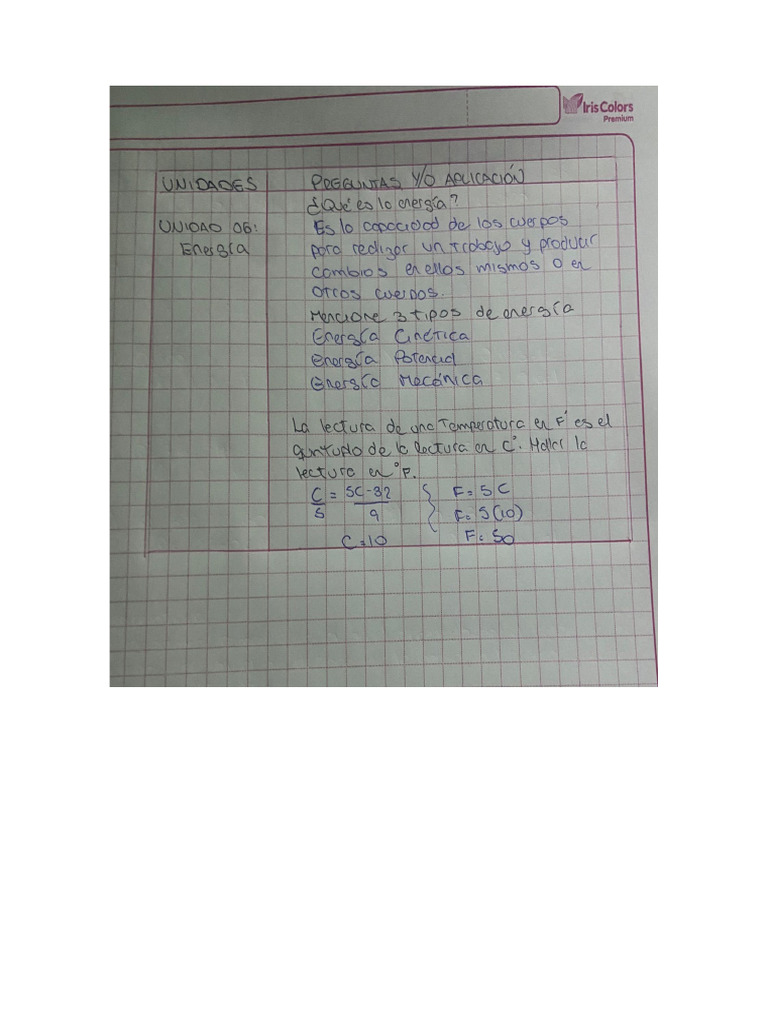 IrisColors
Premium
UNIDADES
PREGUNTAS Y/O APLICACIÓN
¿Qué es la energía?
UNIDAD 06:
Energía
Es la capacidad de los cuerpos
para realizar un trabajo y producir
cambios en ellos mismos o en
otros cuerpos.
Mencione 3 tipos de energía
Energía Cinética
Energía Potencial
Energía Mecánica
La lectura de una temperatura en F° es el
quintuplo de la lectura en C°. Haller la
lectura en °F.
C/5 = 5C-32/9
C=10
F= 5C
F= 5(10)
F= 50